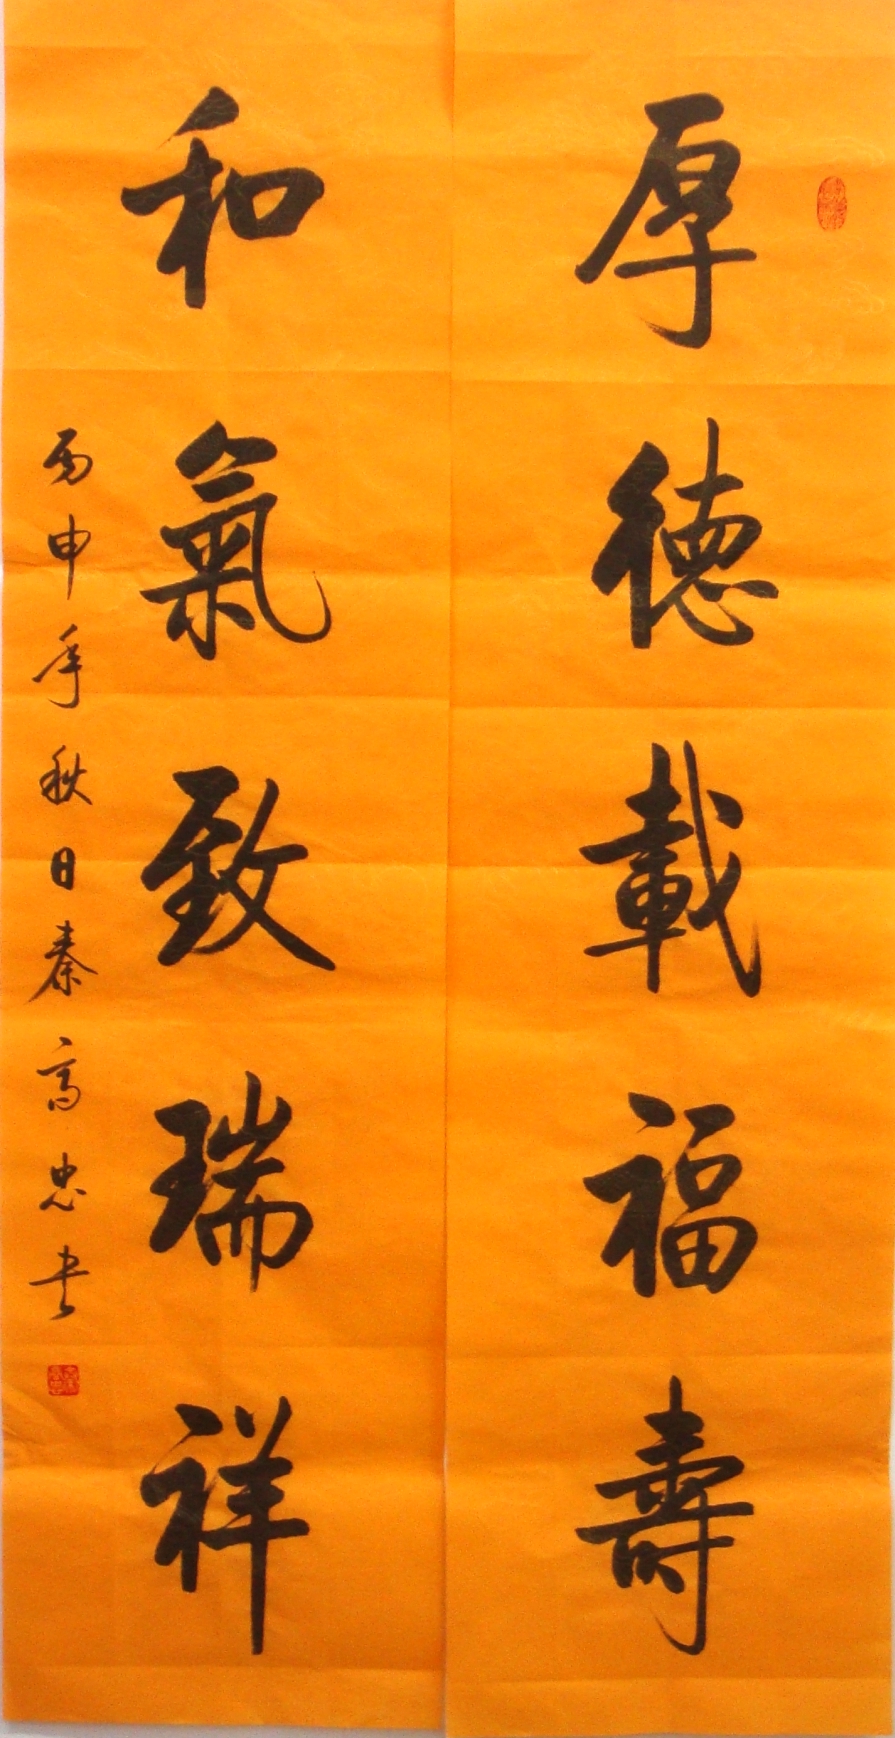 厚德載福壽
和氣致瑞祥
丙申年秋日秦高忠书